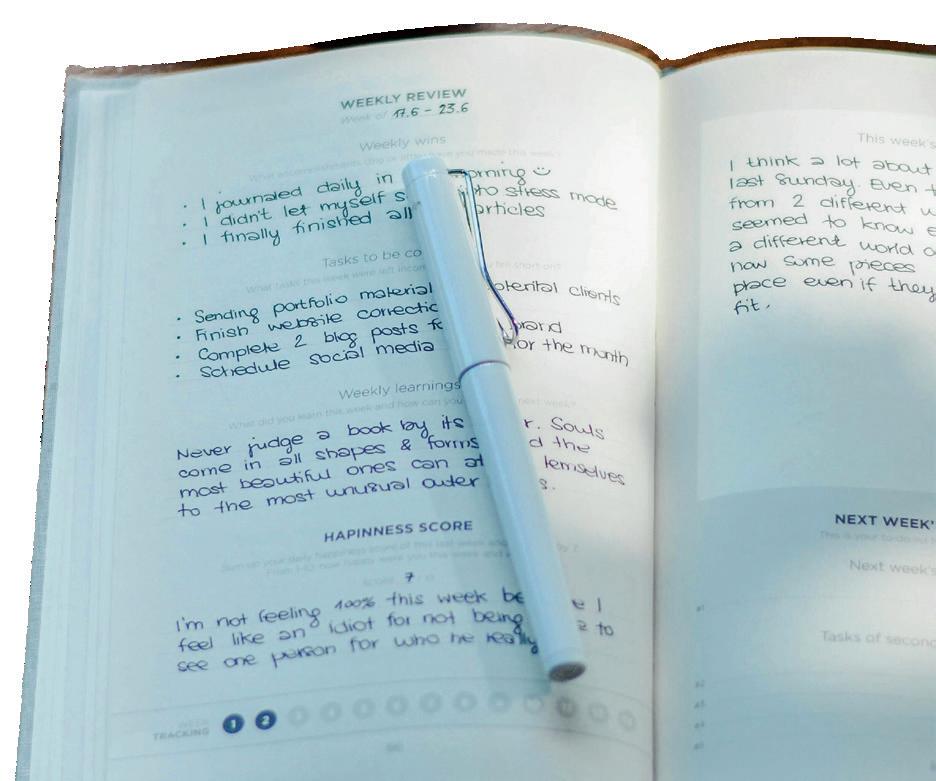 WEEKLY REVIEW
Week of 17.6 - 23.6
Weekly wins
• I journaled daily in orning ☺
• I didn't let myself s into stress mode
• I finally finished all articles
Tasks to be co
What tasks this week were left incom fell short on?
• Sending portfolio material potential clients
• Finish website correctio
• Complete 2 blog posts fo brand
• Schedule social media for the month
Weekly learnings
What did you learn this week and how can you next week?
Never judge a book by its r. Souls
come in all shapes & forms d the
most beautiful ones can at emselves
to the most unusual outer s.
HAPINNESS SCORE
7
I'm not feeling 100% this week be e I
feel like an idiot for not being e to
see one person for who he really
WEEK
TRACKING 1 2
This week's
I think a lot about
last Sunday. Even t
from 2 different w
seemed to know e
a different world o
how some pieces
place even if they
fit.
NEXT WEEK'
This is your to-do list
Next week's
Tasks of second